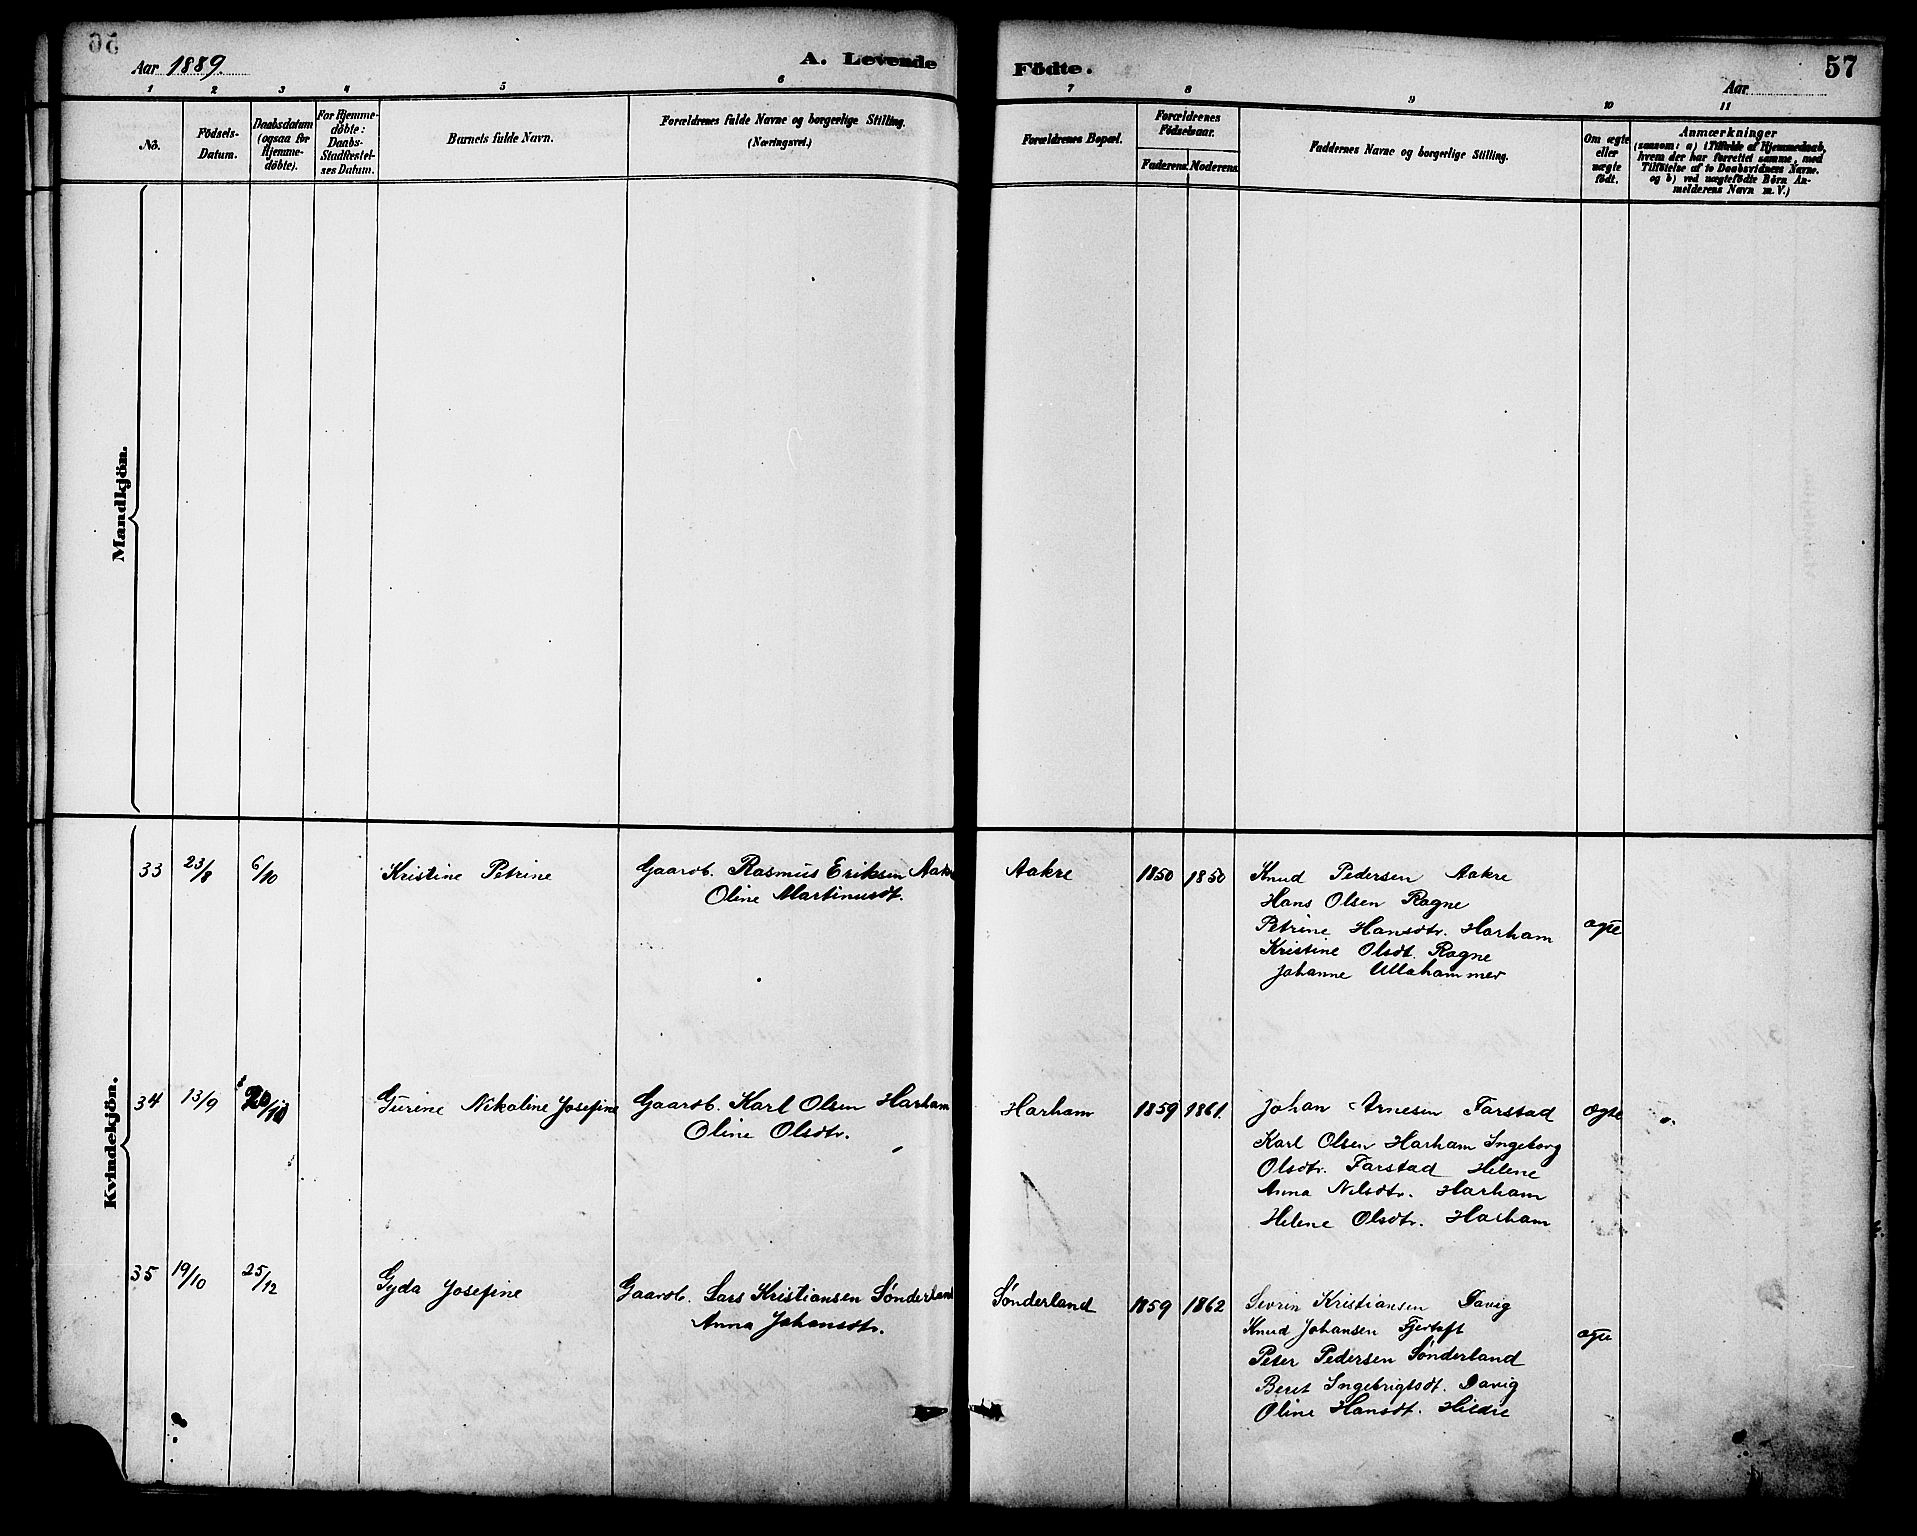 56
57
Aar 1889.
A. Levende
Födte.
Aar
1 2 3 4 5 6 7 8 9 10 11
No.
Födsels-
Datum.
Daabsdatum
(ogsaa for
Hjemme-
döbte).
For Hjemme-
döbte:
Daabs-
Stadfestel-
ses Datum.
Barnets fulde Navn.
Forældrenes fulde Navne og borgerlige Stilling.
(Næringsvei.)
Forældrenes Bopæl.
Forældrenes
Födselsaar.
Faderens. Moderens.
Faddernes Navne og borgerlige Stilling.
Om ægte
eller
uægte
födt.
Anmærkninger
(saasom: a) i Tilfælde af Hjemmedaab,
hvem der har forrettet samme, med
Tilföielse af to Daabsvidners Navne.
og b) ved uægtefödte Börn An-
melderens Navn m. V.)
Mandkjön.
Kvindekjön.
33 23/8 6/10 Kristine Petrine Gaardb. Rasmus Eriksen Aakre Aakre 1850 1850 Knud Pedersen Aakre
Oline Martinusdt. Hans Olsen Rogne
Petrine Hansdtr. Harham ægte
Kristine Olsdt. Rogne
Johanne Ullahammer
34 13/9 20/10 Gurine Nikoline Josefine Gaardb. Karl Olsen Harham Harham 1859 1861. Johan Arnesen Farstad ægte
Oline Olsdtr. Karl Olsen Harham Ingeborg
Olsdtr. Farstad Helene
Anna Nilsdtr. Harham
Helene Olsdtr. Harham
35 19/10 25/12 Gyda Josefine Gaardb. Lars Kristiansen Sønderland Sønderland 1859 1862 Sevrin Kristiansen Davig
Anna Johansdtr. Knud Johansen Fjertoft ægte
Peter Pedersen Sønderland
Beret Ingebrigtsdt. Davig
Oline Hansdt. Hildre